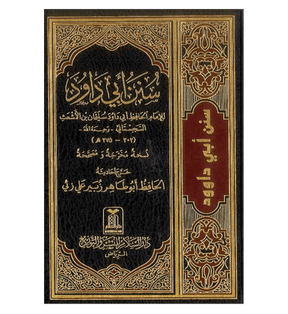 سنن أبي داود
للإمام الحافظ أبي داود سليمان بن الأشعث
السجستاني - رحمه الله -
(٢٠٢ - ٢٧٥ هـ)
نسخة مخرجة و مصححة
الحافظ أبو طاهر زبير علي زئي
دار السلام للنشر والتوزيع
الرياض
سنن أبي داوود